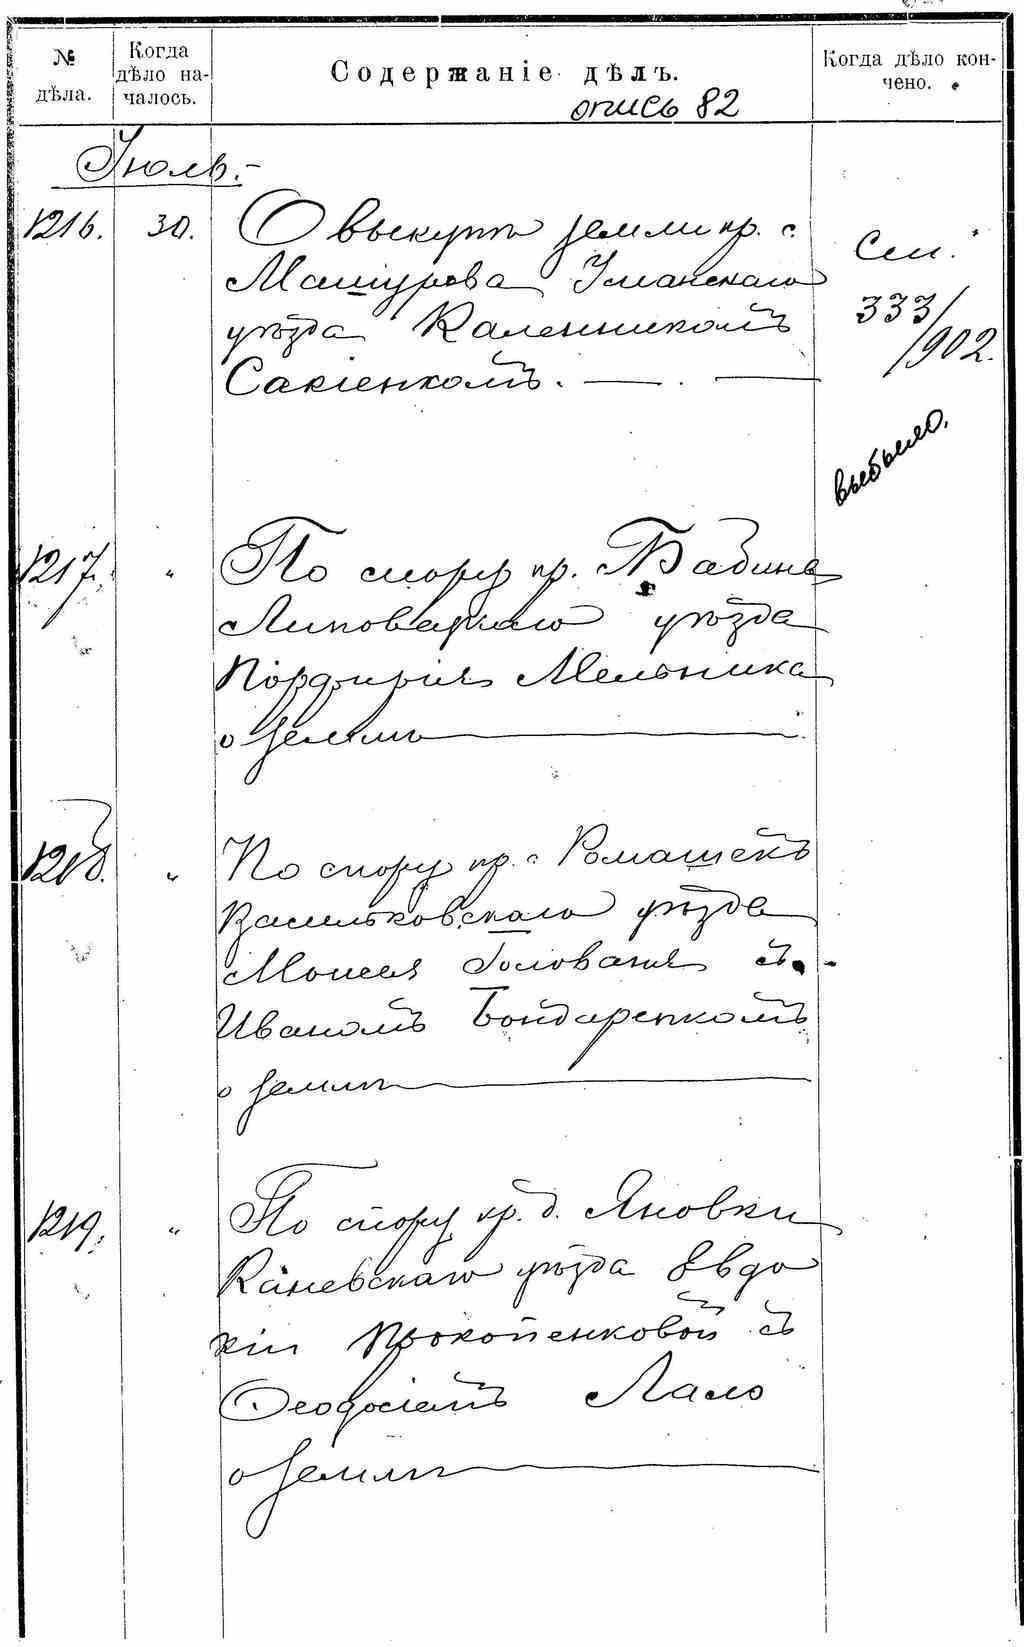 № дѣла.
Когда дѣло на-
чалось.
Содержаніе дѣлъ.
Когда дѣло кон-
чено.
опись 82
Іюль.-
1216. 30. О выкупѣ земли кр. с.
Машурова Уманскаго
уѣзда Каленникомъ
Сакіенкомъ. — . —
См.
333/
/902.
выбыло.
1217. " По спору кр. Бабина
Липовецкаго уѣзда
Порфирія Мельника
о землѣ
1218. " По спору кр. с. Ромашекъ
Васильковскаго уѣзда
Моисея Голованя съ
Иваномъ Бондаренкомъ
о землѣ
1219. " По спору кр. д. Яновки
Каневскаго уѣзда Евдо
кіи Прокопенковой съ
Ѳеодосіемъ Лало
о землѣ